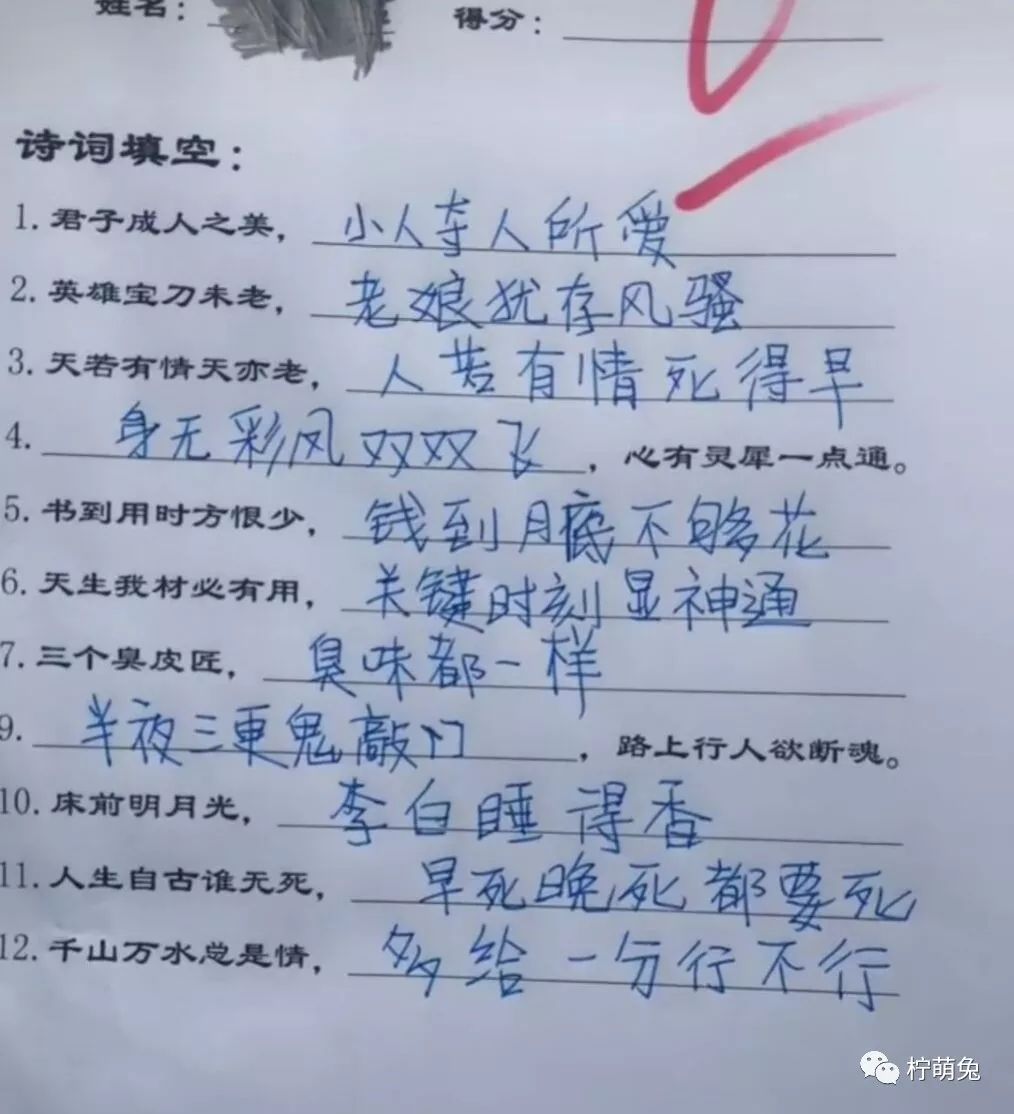 姓名：
得分：
诗词填空：
1. 君子成人之美，小人夺人所爱
2. 英雄宝刀未老，老娘犹存风骚
3. 天若有情天亦老，人若有情死得早
4. 身无彩凤双双飞，心有灵犀一点通。
5. 书到用时方恨少，钱到月底不够花
6. 天生我材必有用，关键时刻显神通
7. 三个臭皮匠，臭味都一样
9. 半夜三更鬼敲门，路上行人欲断魂。
10. 床前明月光，李白睡得香
11. 人生自古谁无死，早死晚死都要死
12. 千山万水总是情，多给一分行不行
柠萌兔